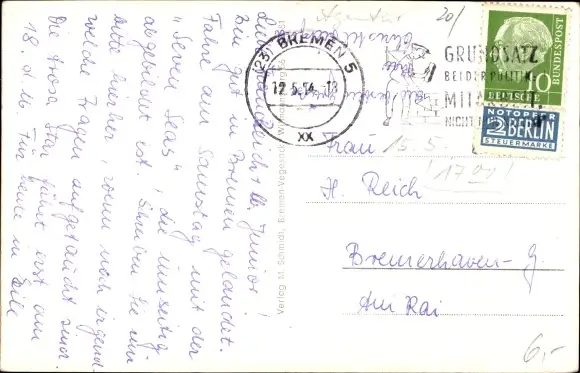 Liebe Frau Reich + Kl. Junior!
Bin gut in Bremen gelandet.
Fahre am Samstag mit der
"Seven Seas", die umseitig
abgebildet ist. Schreiben Sie mir
bitte hierher, wenn noch irgend-
welche Fragen aufgetaucht sind.
Die Arosa Star fährt erst am
18. d. M. Für heute in Eile
Verlag M. Schmidt, Bremen-Vegesack
(23) BREMEN 5
12.5.54.-18
XX
GRUNDSATZ
BEI DER POLITIK:
NICHT
DEUTSCHE
BUNDESPOST
10
NOTOPFER
2 BERLIN
STEUERMARKE
20/
Frau
15.5.
1700
H. Reich
Bremerhaven-G.
Am Kai
6,-